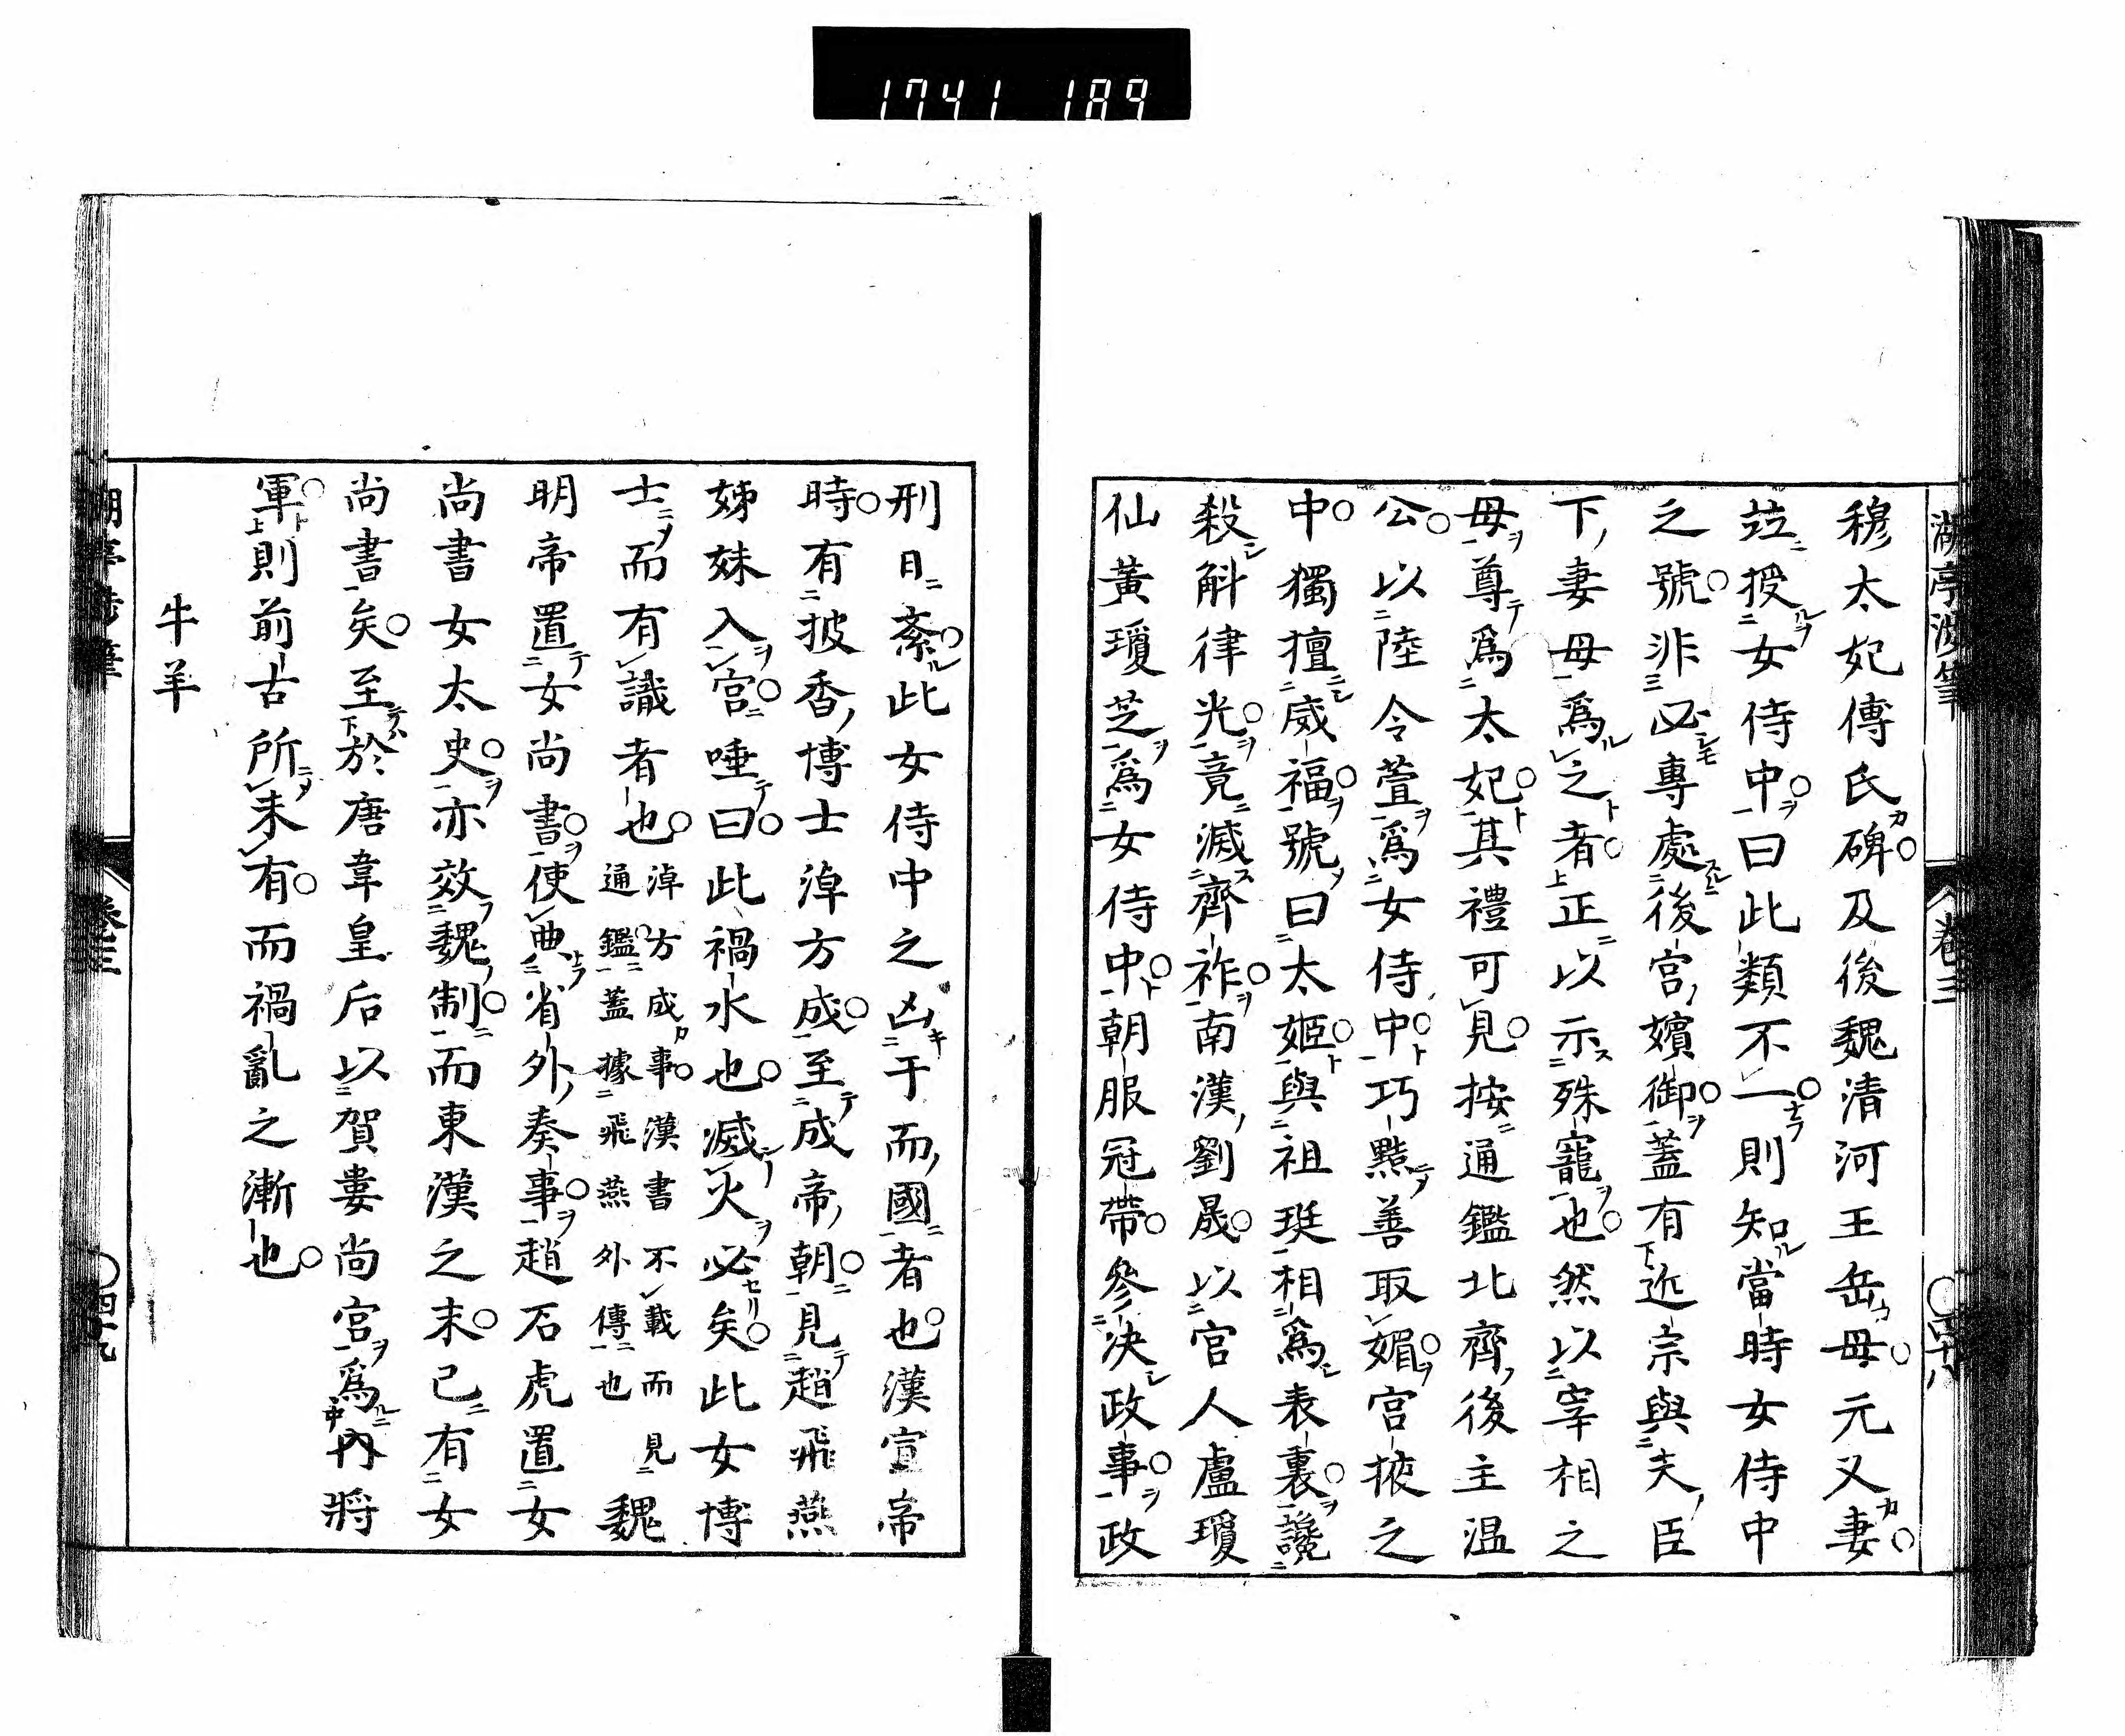 1741 189
穆太妃傳氏碑及後魏清河王岳母元叉妻
竝授女侍中曰此類不一則知當時女侍中
之號非必專處後宮嬪御蓋有近宗與夫臣
下妻母爲之者正以示殊寵也然以宰相之
母尊爲太妃其禮可見按通鑑北齊後主温
公以陸令萱爲女侍中巧黠善取媚宮掖之
中獨擅威福號曰太姬與祖珽相爲表裏讒
殺斛律光竟滅齊祚南漢劉晟以宮人盧瓊
仙黃瓊芝爲女侍中朝服冠帶參決政事政
刑日紊此女侍中之凶于而國者也漢宣帝
時有披香博士淖方成至成帝朝見趙飛燕
姊妹入宮唾曰此禍水也滅火必矣此女博
士而有識者也淖方成事漢書不載而見通鑑蓋據飛燕外傳也魏
明帝置女尚書使典省外奏事趙石虎置女
尚書女太史亦效魏制而東漢之末已有女
尚書矣至於唐韋皇后以賀婁尚宮爲內將
軍則前古所未有而禍亂之漸也
牛羊
卷三